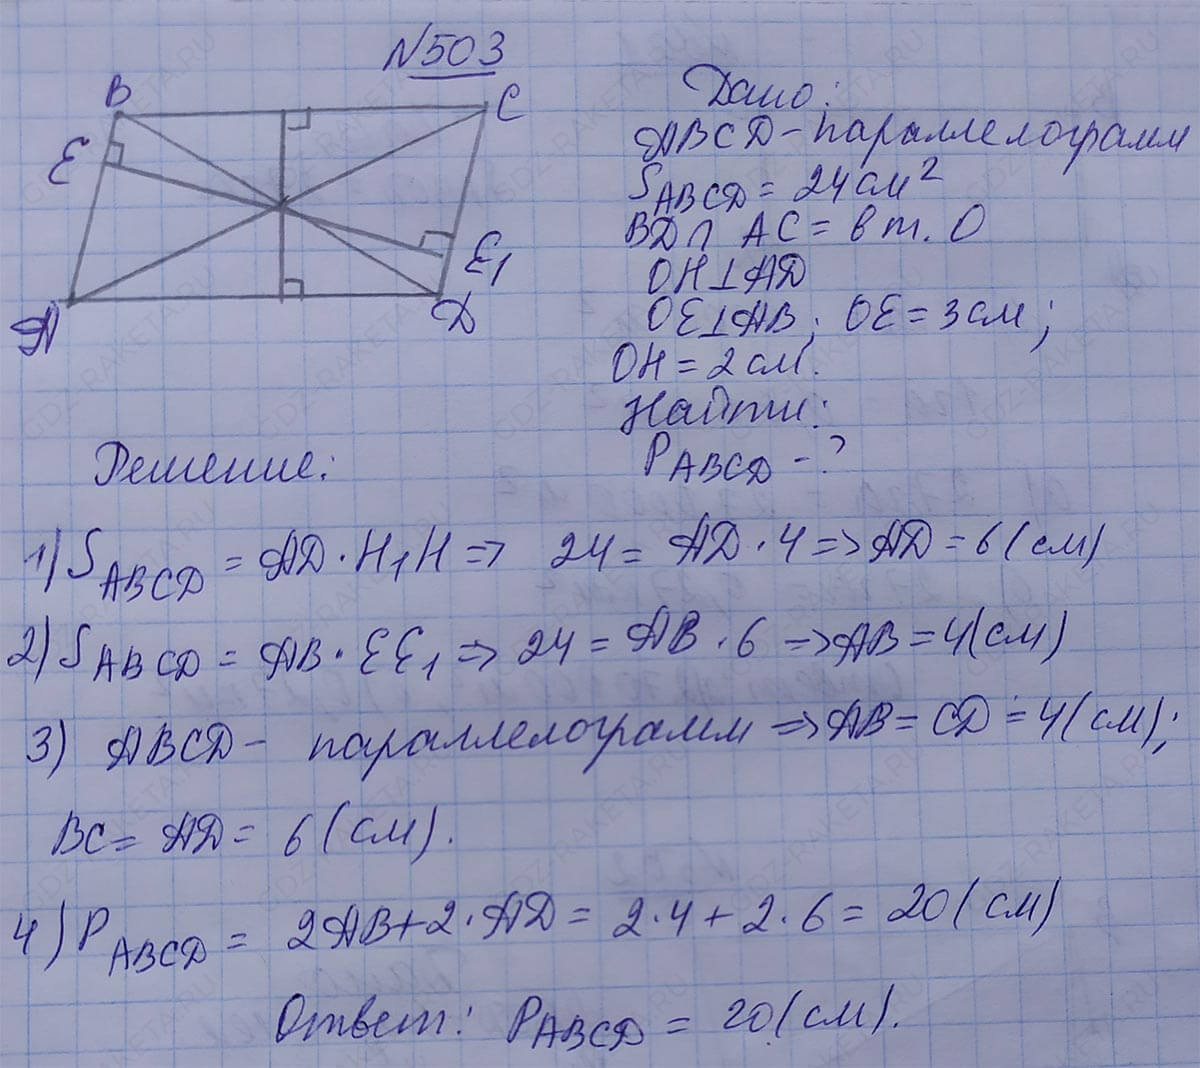 N503
B
C
E
E1
A
D
Дано:
ABCD - параллелограмм
SABCD = 24 см²
BD ∩ AC = в т. O
OH⊥AD
OE⊥AB; OE = 3 см;
OH = 2 см.
Найти:
PABCD - ?
Решение:
1) SABCD = AD · H1H => 24 = AD · 4 => AD = 6 (см)
2) SABCD = AB · EE1 => 24 = AB · 6 => AB = 4 (см)
3) ABCD - параллелограмм => AB = CD = 4 (см);
BC = AD = 6 (см).
4) PABCD = 2AB + 2 · AD = 2 · 4 + 2 · 6 = 20 (см)
Ответ: PABCD = 20 (см).
GDZ-RAKETA.RU